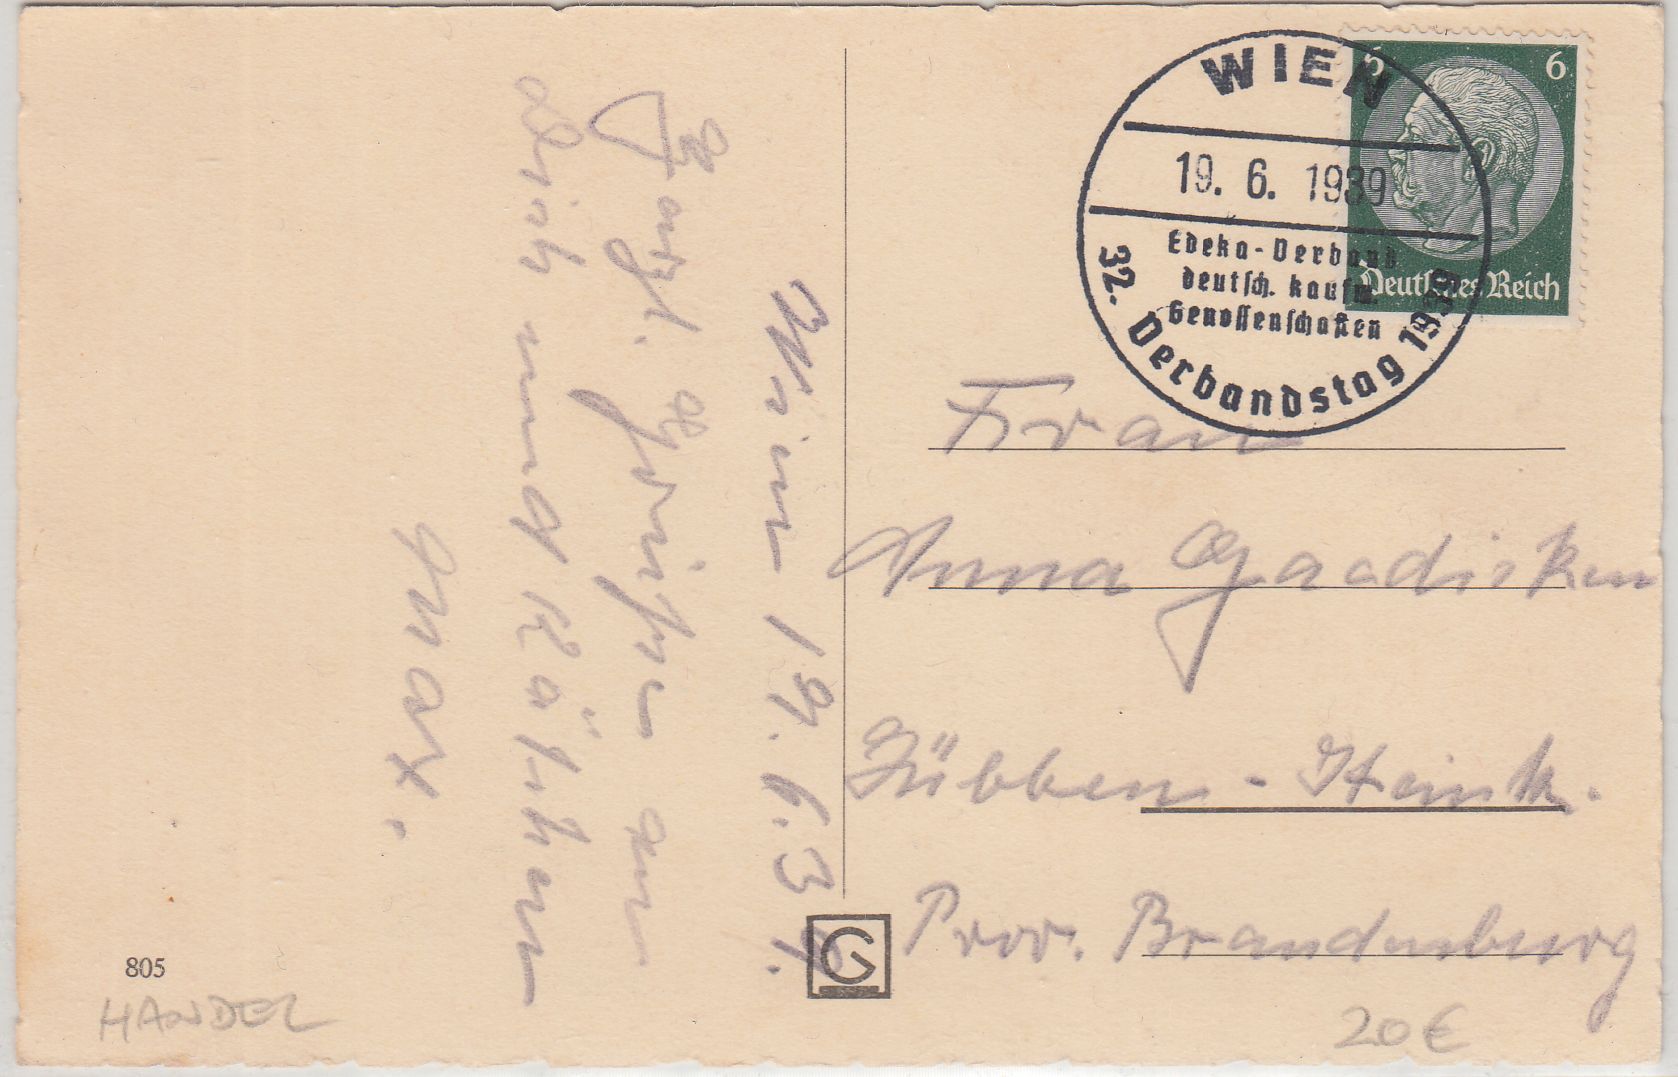 WIEN
19. 6. 1939
Edeka-Verband
deutsch. kaufm.
Genossenschaften
32. Verbandstag 1939
6
6
Deutsches Reich
Wien 19. 6. 39.
Herzl. Grüße an
dich und Käthen
Max.
Frau
Anna
Lübben - Steink.
Prov. Brandenburg
G
805
HANDEL
20€